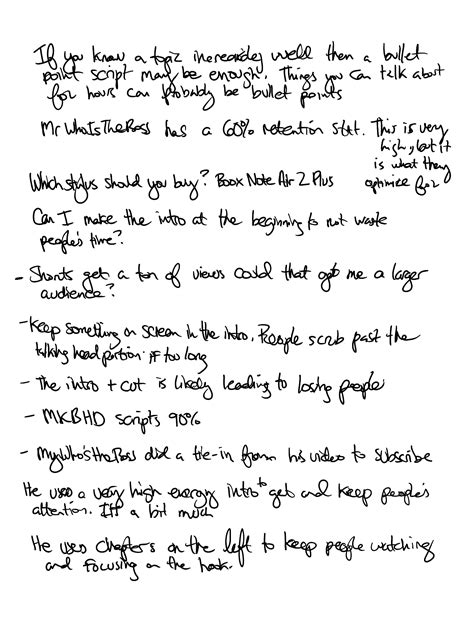 If you know a topic increadiley well then a bullet
point script may be enough. Things you can talk about
for hours can probably be bullet points
Mr WhatsTheBoss has a 60% retention stat. This is very
high, but it
is what they
optimize for
Which stylus should you buy? Boox Note Air 2 Plus
Can I make the intro at the beginning to not waste
people's time?
- Shorts get a ton of views could that get me a larger
audience?
- Keep something on screen in the intro. People scrub past the
talking head portion if too long
- The intro + cut is likely leading to losing people
- MKBHD scripts 90%
- MrWho'stheBoss did a tie-in from his video to subscribe
He uses a very high energy intro to get and keep people's
attention. It a bit much
He uses chapters on the left to keep people watching
and focusing on the hook.